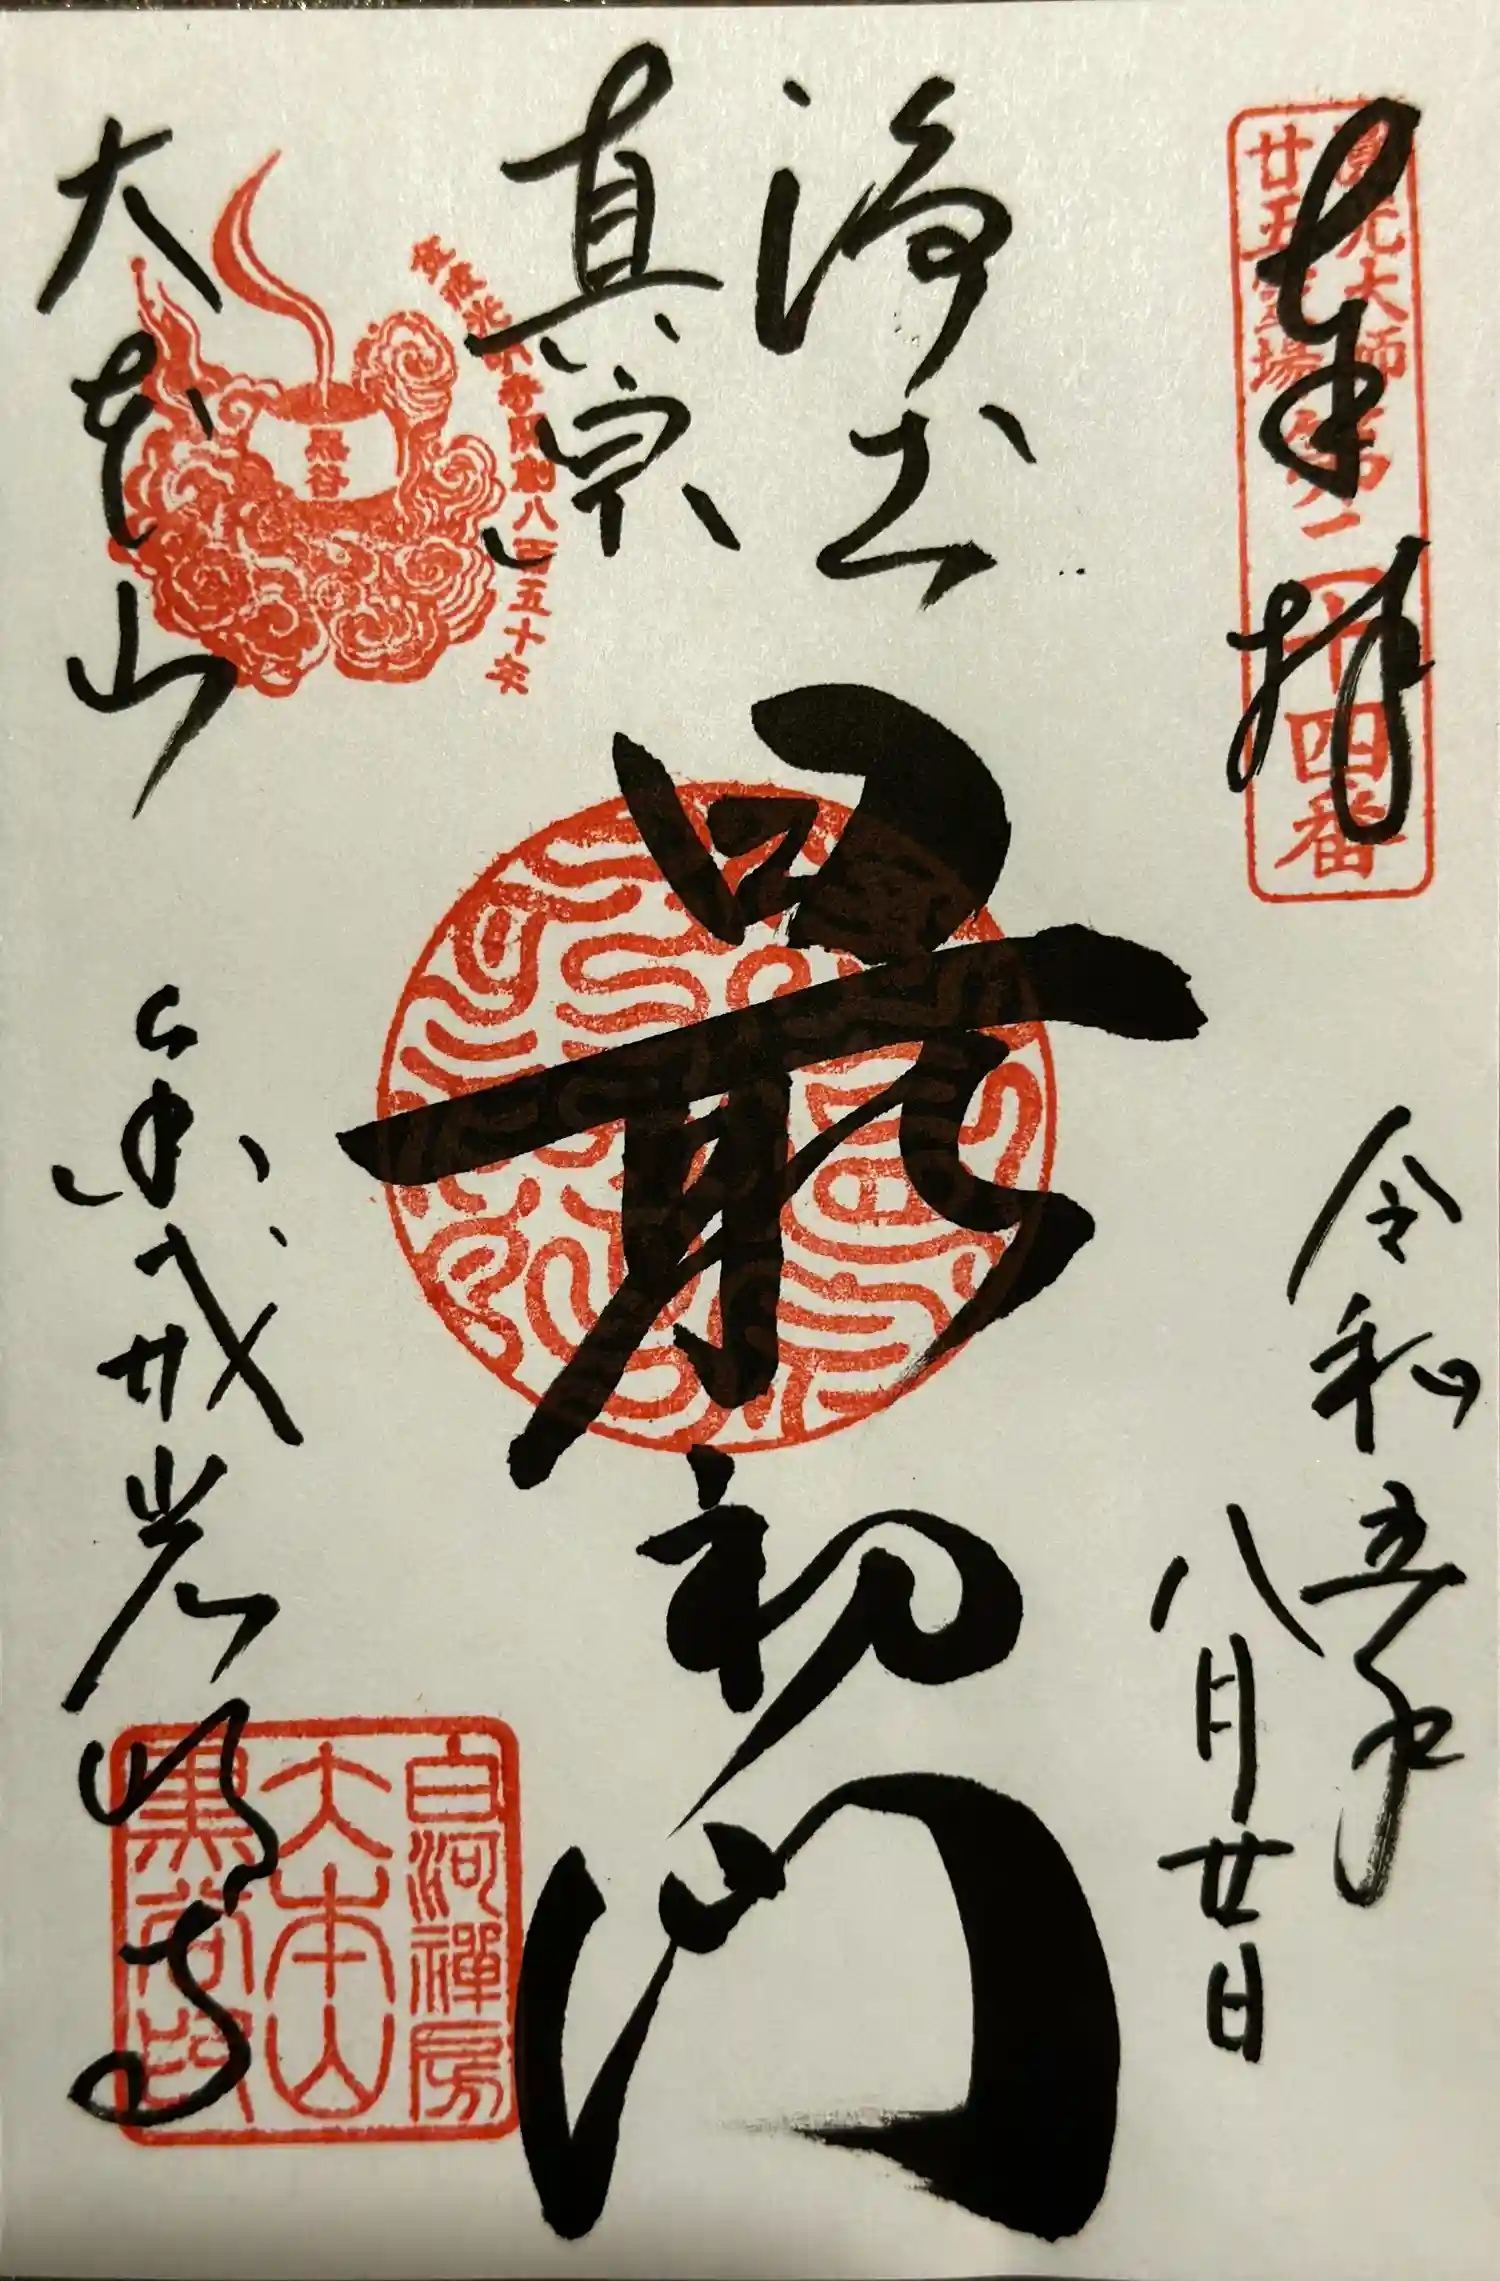 奉拝
圓光大師
廿五霊場 第二十四番
令和五年
八月廿日
浄土
真宗
最初門
大本山
金戒光明寺
黒谷
金戒光明寺開創八百五十年
白河禅房
大本山